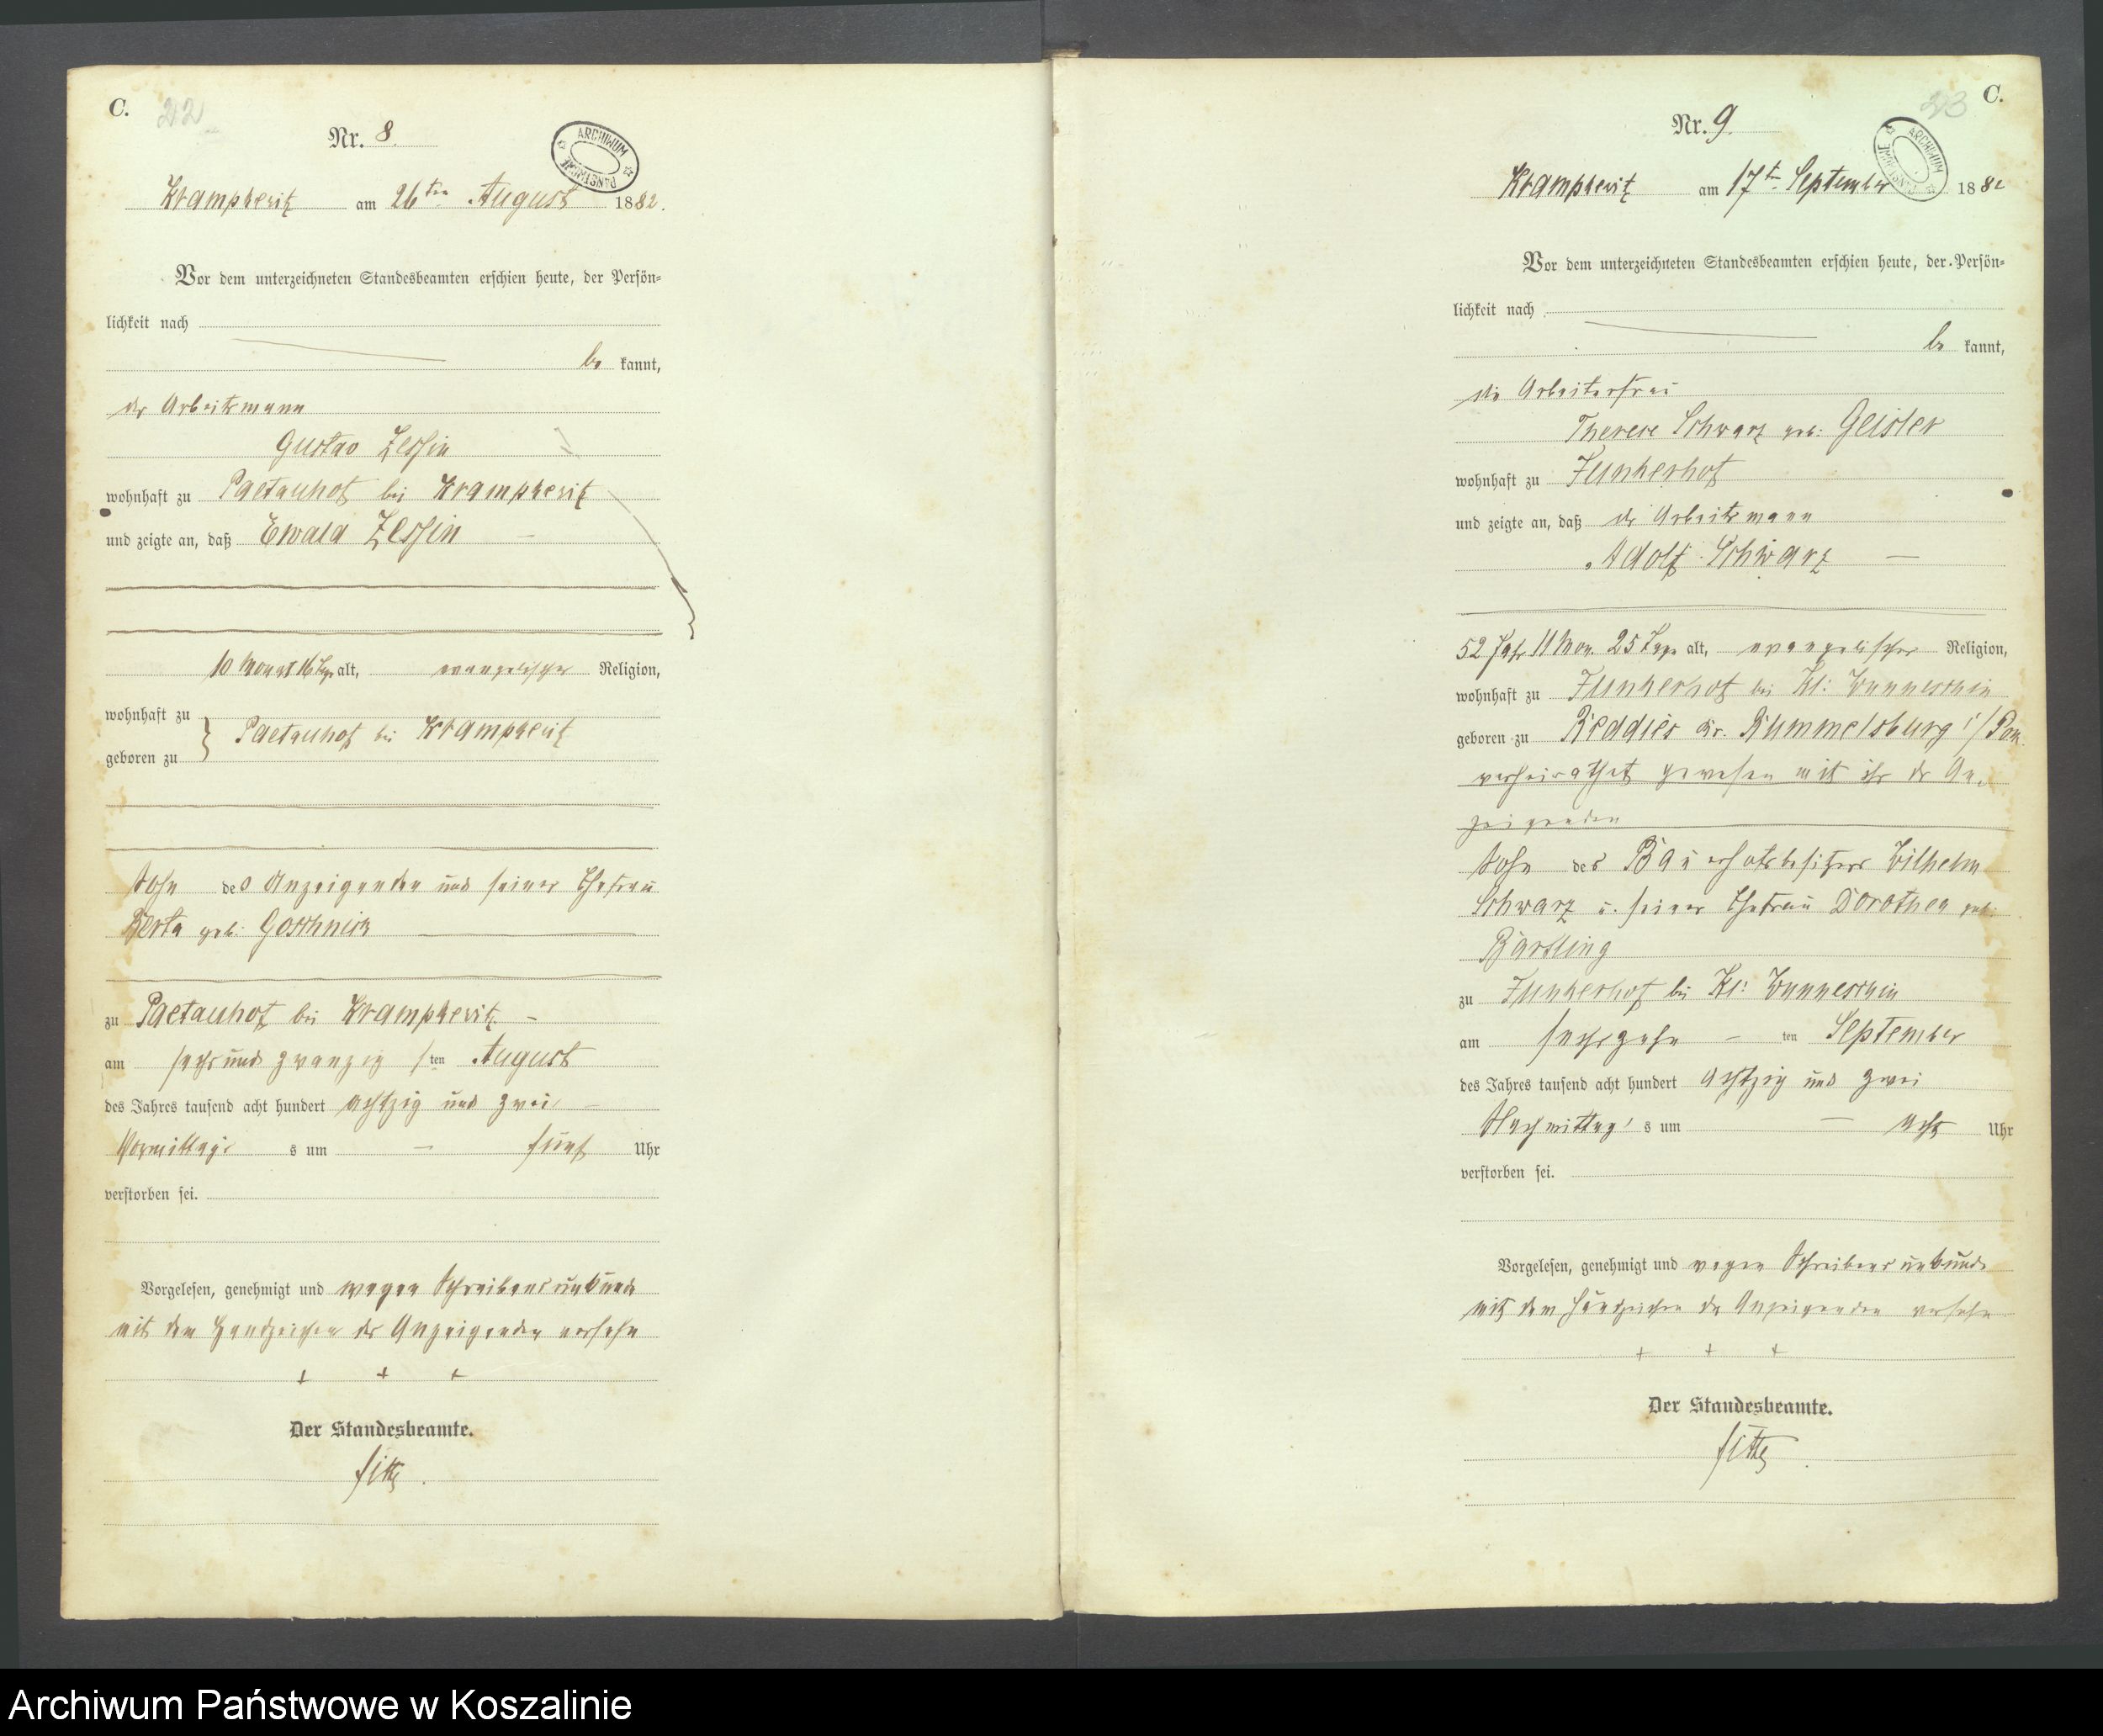 C. 22
Nr. 8.
ARCHIWUM PAŃSTWOWE
Krampkewitz am 26ten August 1882.
Vor dem unterzeichneten Standesbeamten erschien heute, der Persön-
lichkeit nach
be kannt,
der Arbeitsmann
Gustav Zessin
wohnhaft zu Paetauhof bei Krampkewitz
und zeigte an, daß Ewald Zessin
10 Monat 16 Tage alt, evangelischer Religion,
wohnhaft zu
geboren zu } Paetauhof bei Krampkewitz
Sohn des Anzeigenden und seiner Ehefrau
Berta geb:
zu Paetauhof bei Krampkewitz
am sechs und zwanzig sten August
des Jahres tausend acht hundert achtzig und zwei
Vormittags s um fünf Uhr
verstorben sei.
Vorgelesen, genehmigt und wegen Schreibensunkunde
mit dem Handzeichen des Anzeigenden versehn
+ + +
Der Standesbeamte.
C. 23
Nr. 9.
ARCHIWUM PAŃSTWOWE
Krampkewitz am 17t. September 1882
Vor dem unterzeichneten Standesbeamten erschien heute, der Persön-
lichkeit nach
be kannt,
die Arbeiterfrau
Therese Schwarz geb: Geisler
wohnhaft zu Junkerhof
und zeigte an, daß der Arbeitsmann
Adolf Schwarz
52 Jahr 11 Mon. 25 Tage alt, evangelischer Religion,
wohnhaft zu Junkerhof bei Kl: Wunneschin
geboren zu Reddies Kr. Rummelsburg i/Pom.
verheirathet gewesen mit ihr der An-
zeigenden
Sohn des Bauerhofsbesitzers Wilhelm
Schwarz u. seiner Ehefrau Dorothea geb:
zu Junkerhof bei Kl: Wunneschin
am sechszehn ten September
des Jahres tausend acht hundert achtzig und zwei
Nachmittag s um acht Uhr
verstorben sei.
Vorgelesen, genehmigt und wegen Schreibensunkunde
mit dem Handzeichen der Anzeigenden versehn
+ + +
Der Standesbeamte.
Archiwum Państwowe w Koszalinie